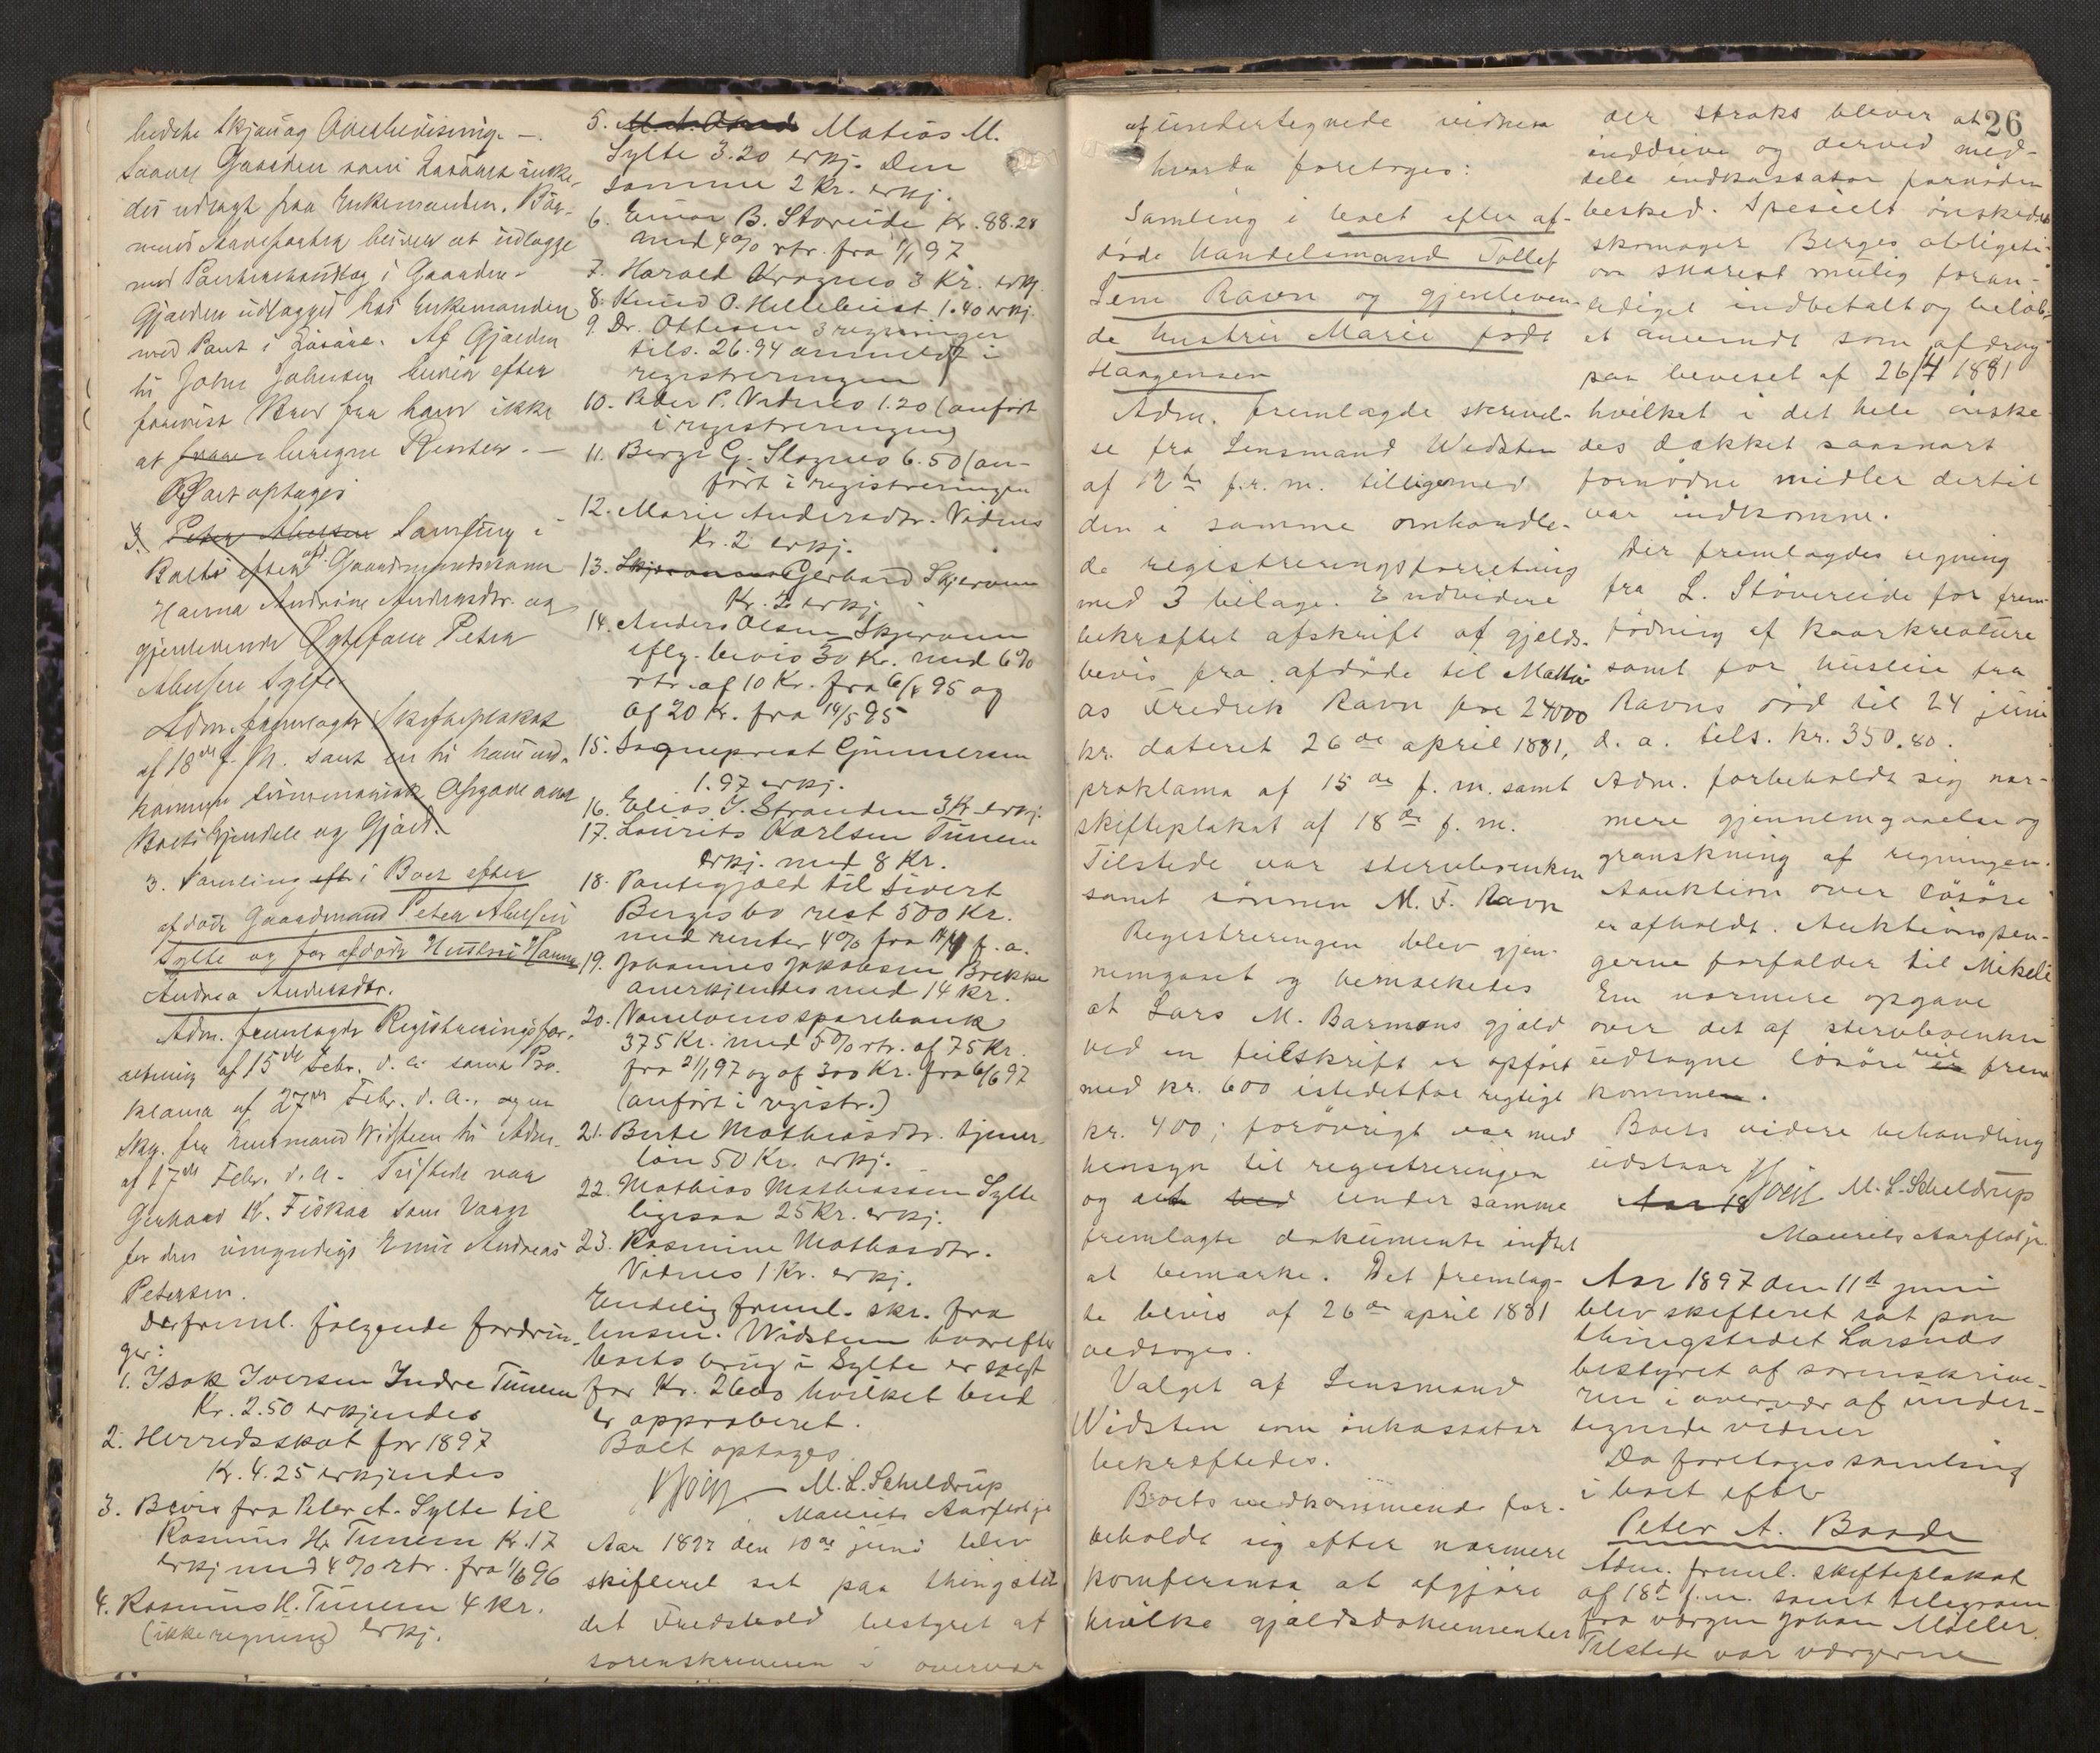 Saavel Gaarden som Løsøre
des udlagt fra Enkemanden. Bör-
med Panteret i Gaarden.
Gjælden udlægges hos Enkemanden
med Pant i Løsøre. Af Gjælden
til John Johnsen bliver efter
fra ham ikke
at beregne Renter. —
Boet optages
3. Peter Abelsen Samling i
Boet efter afd. Gaardmandskone
Hanna Andrine Andersdtr. og
gjenlevende Ægtefælle Peter
Abelsen Sylte
Adm. fremlagde Skifteplakat
af 18de f. M. samt en til ham ind-
kommen summarisk Opgave over
Boets Eiendele og Gjæld.
3. Samling eft i Boet efter
afdøde Gaardmand Peter Abelsen
Sylte og før afdøde Hustru Hanna
Andrea Andersdtr.
Adm. fremlagde Registreringsfor-
retning af 15de Febr. d. a. samt Pro-
klama af 27de Febr. d. a., og en
Skr. fra Lensmand Widsteen til Adm.
af 17de Febr. d. a. Tilstede var
Gerhard K. Fiskaa som Værge
for den umyndige Emil Andreas
Petersen.
Der freml. følgende fordrin-
ger:
1. Isak Iversen Indre Tunem
Kr. 2.50 erkjendes
2. Herredsskat for 1897
Kr. 4.25 erkjendes
3. Bevis fra Peter A. Sylte til
Rasmus H. Tunem Kr. 17
erkj med 4% rtr. fra 1/6 96
4. Rasmus H. Tunem 4 Kr.
(ikke regning) erkj.
5. Matias M.
Sylte 3.20 erkj. Den
samme 2 Kr. erkj.
6. Einar B. Storeide Kr. 88.28
med 4% rtr. fra 1/1 97
7. Harald Kragnes 3 Kr. erkj.
8. Knud O. Hellebust 1.40 erkj.
9. Dr. Ottesen 3 regninger
tils. 26.94 anmeldt i
registreringen
10. Peder P. Vadnes 1.20 (anført
i registreringen)
11. Berge G. Slagnes 6.50 (an-
ført i registreringen
12. Marie Andersdtr. Vadnes
Kr. 2 erkj.
13. Gerhard Skjervum
Kr. 2 erkj.
14. Anders Olsen Skjervum
iflg. bevis 30 Kr. med 6%
rtr. af 10 Kr. fra 6/8 95 og
af 20 Kr. fra 14/5 95
15. Sogneprest Gunnersen
1.97 erkj.
16. Elias J. Stranden 3 Kr. erkj.
17. Laurits Karlsen Tunem
erkj. med 8 Kr.
18. Pantegjæld til Sivert
Bergesbo rest 500 Kr.
med renter 4% fra 14/4 f. a.
19. Johannes Jakobsen Brekke
anerkjendes med 14 Kr.
20. Vanelvens sparebank
375 Kr. med 5% rtr. af 75 Kr.
fra 21/1 97 og af 300 Kr. fra 6/6 97
(anført i registr.)
21. Berte Mathiasdtr. tjener-
løn 50 Kr. erkj.
22. Mathias Mathiassen Sylte
ligesaa 25 Kr. erkj.
23. Rasmine Mathiasdtr.
Vadnes 1 Kr. erkj.
Endelig freml. skr. fra
lensm. Widsteen hvorefter
boets brug i Sylte er solgt
for Kr. 2600 hvilket bud
er approberet.
Boet optages.
M. L. Scheldrup
Maurits Aarflot jr.
Aar 1897 den 10de juni blev
skifteret sat paa thingste-
det Fredsvold bestyret af
sorenskriveren i overvær
af undertegnede vidner
hvorda foretoges:
Samling i boet efter af-
døde Handelsmand Tollef
Lem Ravn og gjenleven-
de hustru Marie født
Haagensen
Adm. fremlagde skrivel-
se fra Lensmand Widsten
af 12te f. m. tilligemed
den i samme omhandle-
de registreringsforretning
med 3 bilage. Endvidere
bekræftet afskrift af gjelds-
bevis fra afdøde til Mathi-
as Fredrik Ravn for 24000
kr. dateret 26de april 1881,
proklama af 15de f. m. samt
skifteplakat af 18de f. m.
Tilstede var stervboenken
samt sønnen M. F. Ravn
Registreringen blev gjen-
nemgaaet og bemærkedes
at Lars M. Barmens gjæld
ved en feilskrift er opført
med kr. 600 istedetfor rigtigt
kr. 400; forøvrigt var med
hensyn til registreringen
og det ved under samme
fremlagte dokumente intet
at bemærke. Det fremlag-
te bevis af 26de april 1881
vedtoges.
Valget af Lensmand
Widsten som inkassator
bekræftedes.
Boets vedkommende for-
beholdt sig efter nærmere
konferense at afgjøre
hvilke gjældsdokumenter
der straks bliver at
inddrive og derved med-
dele indkassator fornøden
besked. Specielt ønskedes
skomager Berges obligati-
on snarest mulig foran-
lediget indbetalt og beløb-
et anvendt som afdrag
paa beviset af 26/4 1881
hvilket i det hele ønske-
des dækket saasnart
fornødne midler dertil
var indkomne.
Der fremlagdes regning
fra L. Støvereide for frem-
fødning af kaarkreature
samt for husleie fra
Ravns død til 24 juni
d. a. tils. kr. 350.80.
Adm. forbeholdt sig nær-
mere gjennemgaaelse og
granskning af regningen.
Auktion over løsøre
er afholdt. Auktionspen-
gerne forfalder til Mikeli
En nærmere opgave
over det af stervboenken
udtagne løsøre vil frem
komme.
Boets videre behandling
udstaar
Aar 18
M. L. Scheldrup
Maurits Aarflot jr.
Aar 1897 den 11te juni
blev skifteret sat paa
thingstedet Larsnæs
bestyret af sorenskrive-
ren i overvær af under-
tegnede vidner
Da foretoges samling
i boet efter
Peter A. Baade
Adm. freml. skifteplakat
af 18de f. m. samt telegram
fra værgen Johan Møller.
Tilstede var værgerne
26